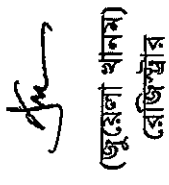 (জুয়েলা খানম)
রেজিস্ট্রার